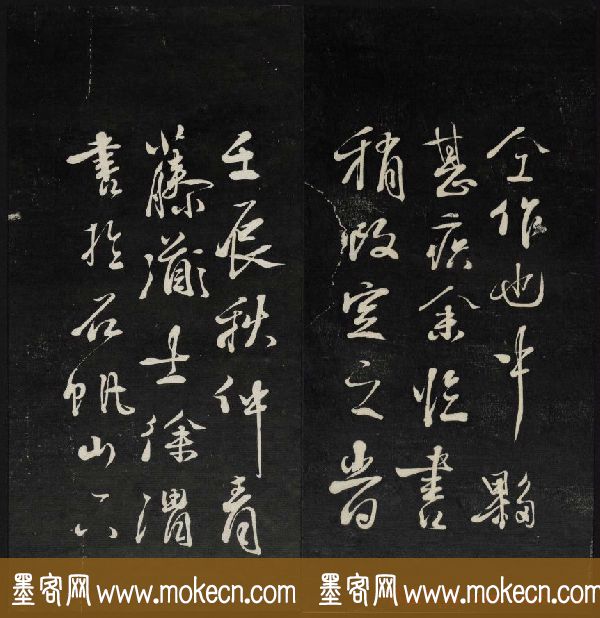 仝作也中夥
甚疾余臨書
稍改定之旹
壬辰秋仲青
藤道士徐渭
書於石帆山下
墨客网 www.mokecn.com
墨客网 www.mokecn.com